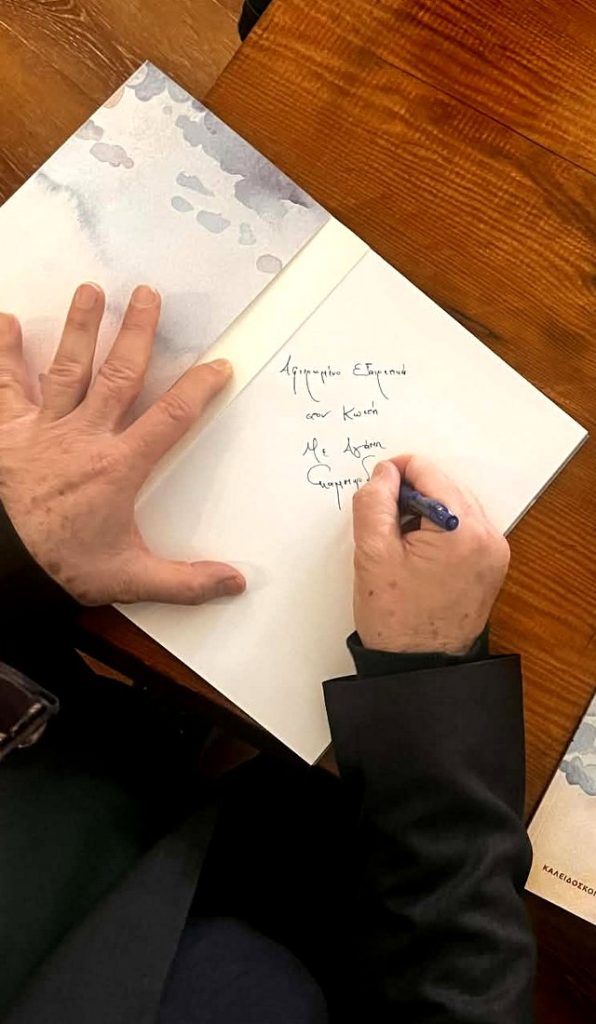 Αφιερωμένο εξαιρετικά
στον Κωστή
Με Αγάπη
ΚΑΛΕΙΔΟΣΚΟΠ